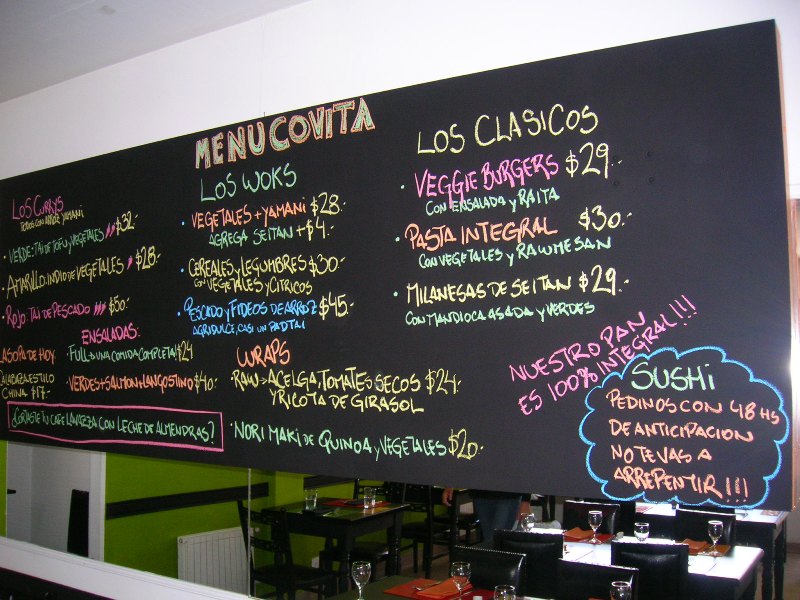 MENUCOVITA
LOS CURRYS
TODOS CON ARROZ YAMANI
• VERDE: TAI DE TOFU y VEGETALES $32.-
• AMARILLO: INDIO DE VEGETALES $28.-
• ROJO: TAI DE PESCADO $50.-
ENSALADAS:
• FULL: UNA COMIDA COMPLETA! $24
• VERDES + SALMON + LANGOSTINO $40.-
LA SOPA DE HOY:
CALABAZA ESTILO
CHINA $17.-
¿CORTASTE TU CAFE LAVAZZA CON LECHE DE ALMENDRAS?
LOS WOKS
• VEGETALES + YAMANI $28.-
AGREGA SEITAN + $4.-
• CEREALES y LEGUMBRES $30.-
CON VEGETALES y CITRICOS
• PESCADO y FIDEOS DE ARROZ $45.-
AGRIDULCE, CASI UN PADTAI
WRAPS
• RAW → ACELGA, TOMATES SECOS $24.-
y RICOTA DE GIRASOL
• NORI MAKI DE QUINOA y VEGETALES $20.-
LOS CLASICOS
• VEGGIE BURGERS $29.-
CON ENSALADA y RAITA
• PASTA INTEGRAL $30.-
CON VEGETALES y RAWMESAN
• MILANESAS DE SEITAN $29.-
CON MANDIOCA ASADA y VERDES
NUESTRO PAN
ES 100% INTEGRAL!!!
SUSHI
PEDINOS CON 48 HS
DE ANTICIPACION
NO TE VAS A
ARREPENTIR!!!